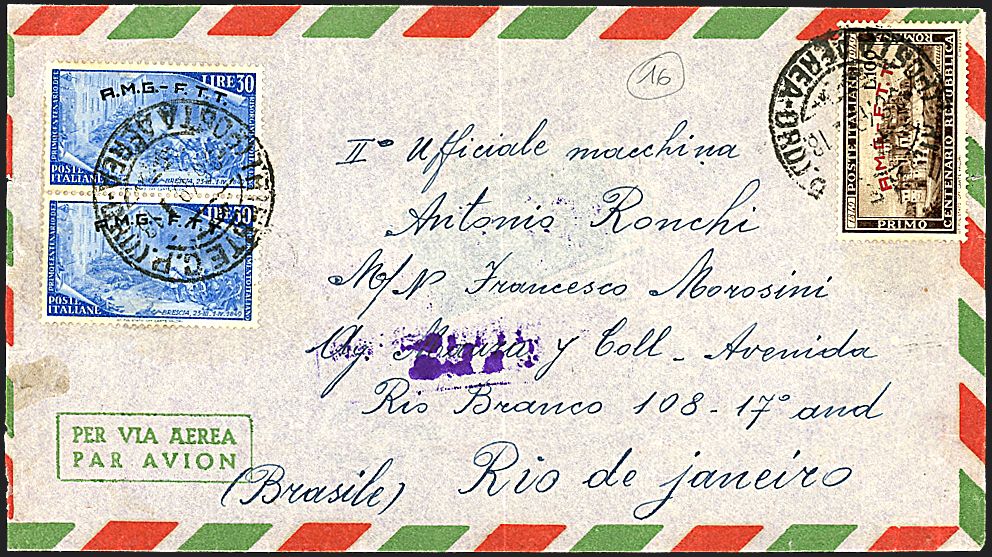 LIRE 30
A.M.G.-F.T.T.
PRIMO CENTENARIO DEL RISORGIMENTO ITALIANO
POSTE ITALIANE
BRESCIA, 23-III. 1-IV. 1849
LIRE 30
A.M.G.-F.T.T.
PRIMO CENTENARIO DEL RISORGIMENTO ITALIANO
POSTE ITALIANE
BRESCIA, 23-III. 1-IV. 1849
TRIESTE C.P.
POSTA AEREA
16
POSTE ITALIANE
A.M.G.-F.T.T.
PRIMO CENTENARIO REPUBBLICA ROMANA
IIº Ufficiale macchina
Antonio Ronchi
M/N Francesco Morosini
Ag. Mauzio y Coll - Avenida
Rio Branco 108 - 17º and
Rio de janeiro
(Brasile)
PER VIA AEREA
PAR AVION